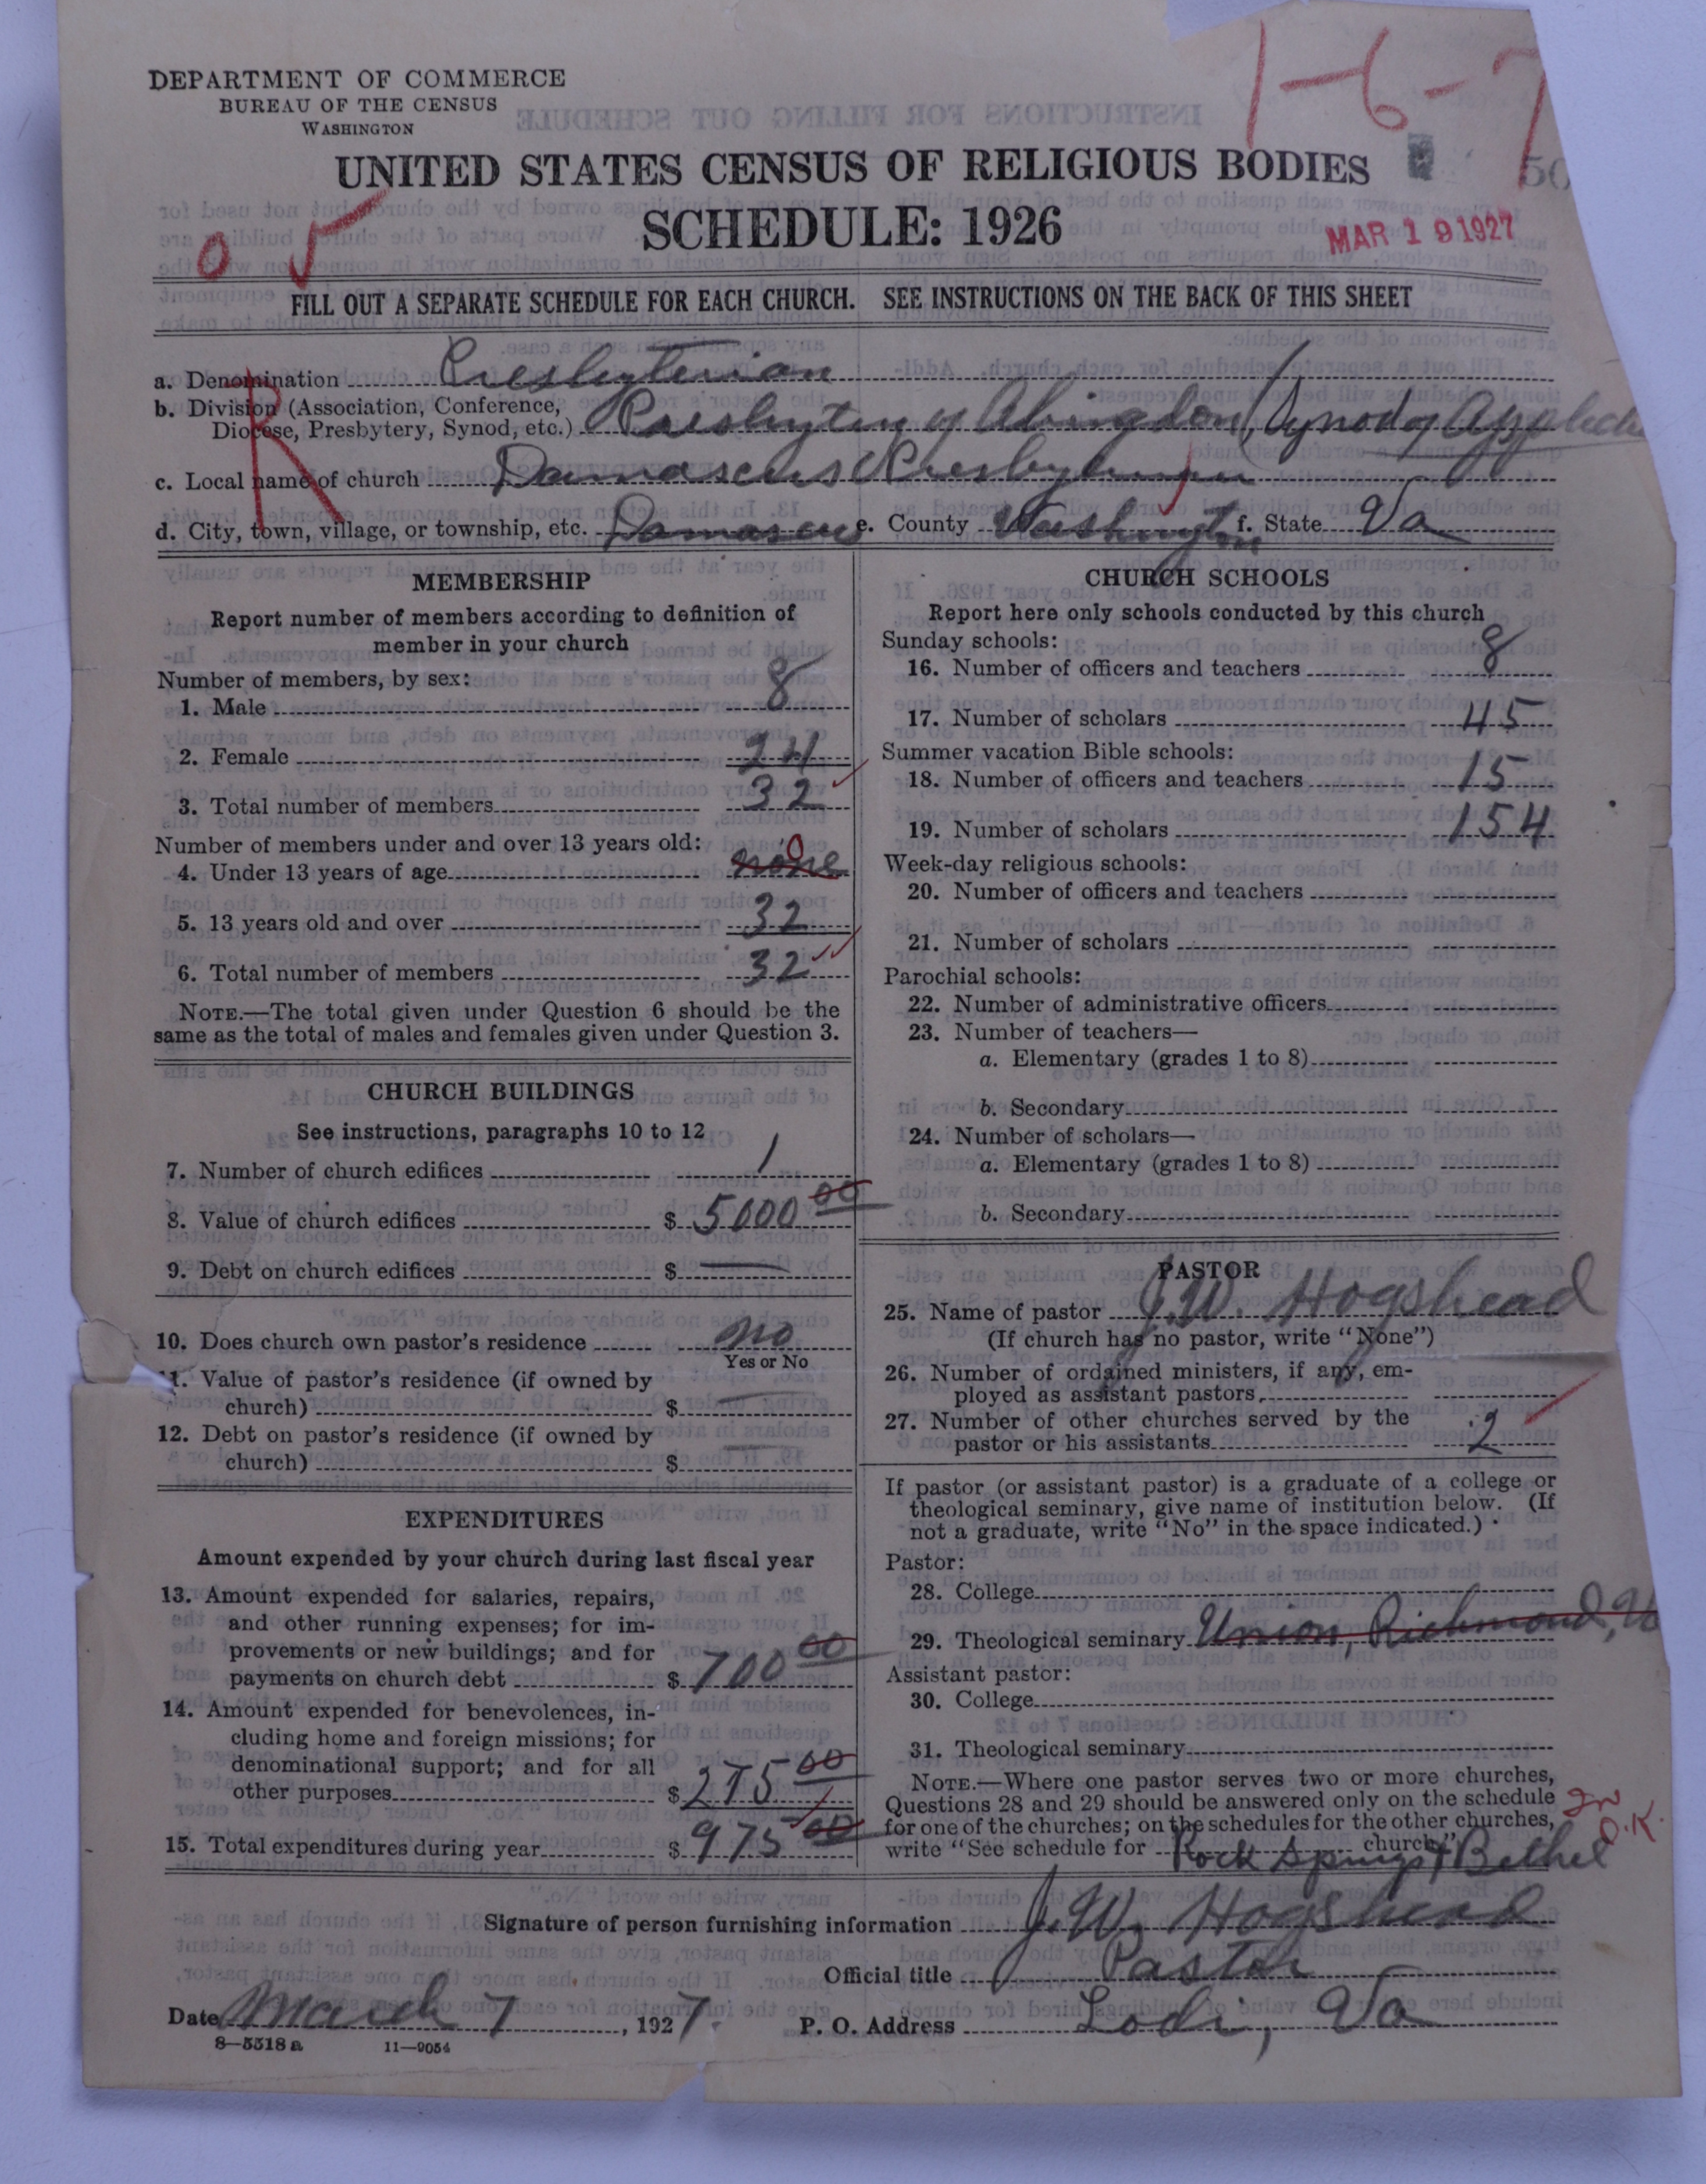 DEPARTMENT OF COMMERCE
BUREAU OF THE CENSUS
WASHINGTON
1-6-7
UNITED STATES CENSUS OF RELIGIOUS BODIES
SCHEDULE: 1926
MAR 19 1927
FILL OUT A SEPARATE SCHEDULE FOR EACH CHURCH. SEE INSTRUCTIONS ON THE BACK OF THIS SHEET
a. Denomination Presbyterian
b. Division (Association, Conference, Diocese, Presbytery, Synod, etc.) Presbytery of Abingdon, Synod of
c. Local name of church Damascus Presbyterian
d. City, town, village, or township, etc. Damascus e. County Washington f. State Va
MEMBERSHIP
Report number of members according to definition of
member in your church
Number of members, by sex:
1. Male 8
2. Female 24
3. Total number of members 32
Number of members under and over 13 years old:
4. Under 13 years of age none 0
5. 13 years old and over 32
6. Total number of members 32
NOTE.—The total given under Question 6 should be the
same as the total of males and females given under Question 3.
CHURCH BUILDINGS
See instructions, paragraphs 10 to 12
7. Number of church edifices 1
8. Value of church edifices $ 5000 00
9. Debt on church edifices $ —
10. Does church own pastor's residence no
Yes or No
11. Value of pastor's residence (if owned by
church) $ —
12. Debt on pastor's residence (if owned by
church) $ —
EXPENDITURES
Amount expended by your church during last fiscal year
13. Amount expended for salaries, repairs,
and other running expenses; for im-
provements or new buildings; and for
payments on church debt $ 700 00
14. Amount expended for benevolences, in-
cluding home and foreign missions; for
denominational support; and for all
other purposes $ 275 00
15. Total expenditures during year $ 975 00
CHURCH SCHOOLS
Report here only schools conducted by this church
Sunday schools:
16. Number of officers and teachers 8
17. Number of scholars 45
Summer vacation Bible schools:
18. Number of officers and teachers 15
19. Number of scholars 154
Week-day religious schools:
20. Number of officers and teachers
21. Number of scholars
Parochial schools:
22. Number of administrative officers
23. Number of teachers—
a. Elementary (grades 1 to 8)
b. Secondary
24. Number of scholars—
a. Elementary (grades 1 to 8)
b. Secondary
PASTOR
25. Name of pastor J. W. Hogshead
(If church has no pastor, write "None")
26. Number of ordained ministers, if any, em-
ployed as assistant pastors,
27. Number of other churches served by the
pastor or his assistants 2
If pastor (or assistant pastor) is a graduate of a college or
theological seminary, give name of institution below. (If
not a graduate, write "No" in the space indicated.)
Pastor:
28. College
29. Theological seminary Union, Richmond, Va
Assistant pastor:
30. College
31. Theological seminary
NOTE.—Where one pastor serves two or more churches,
Questions 28 and 29 should be answered only on the schedule
for one of the churches; on the schedules for the other churches,
write "See schedule for Rock Springs & Bethel church."
O.K.
Signature of person furnishing information J. W. Hogshead
Official title Pastor
Date March 7, 1927. P. O. Address Lodi, Va
8—5518 a 11—9054